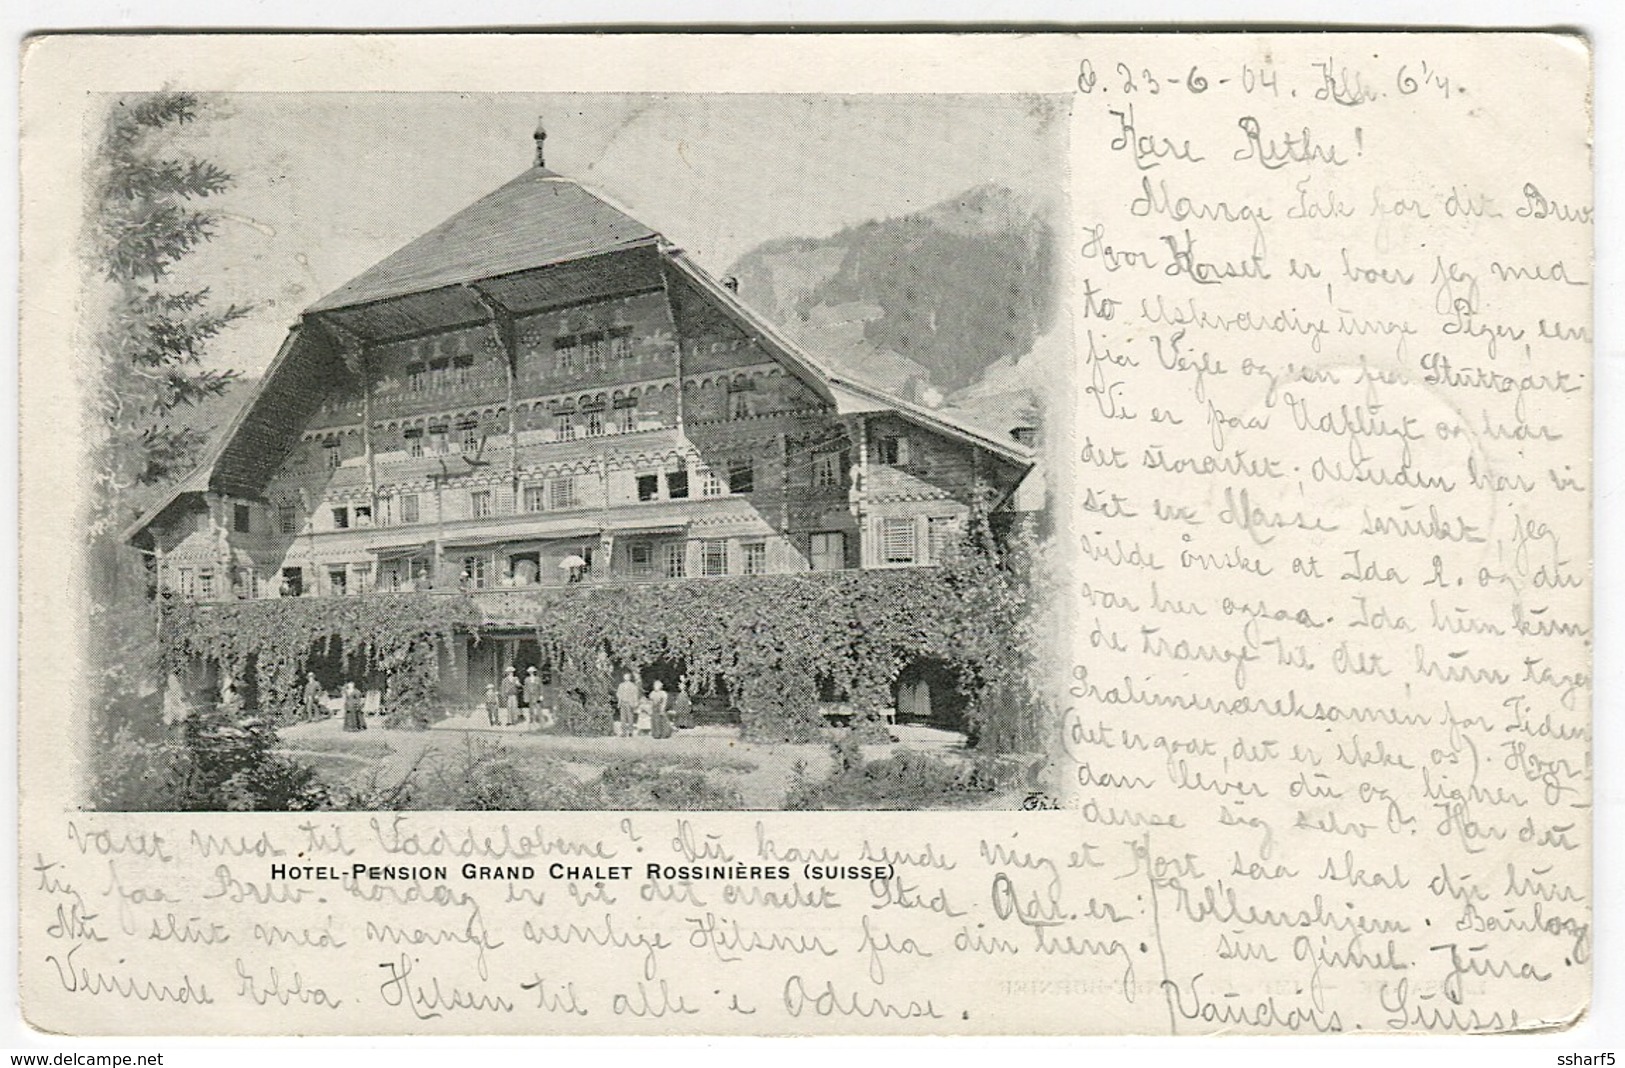 d. 23-6-04. Kl. 6 1/4.
Kære Rethe!
Mange Tak for dit Brev.
Hvor Korset er, boer jeg med
to elskværdige unge Piger, een
fra Vejle og een fra Stuttgart.
Vi er paa Udflugt og har
det storartet; desuden har vi
set en Masse smukt, jeg
vilde ønske at Ida R. og du
var her ogsaa. Ida hun kun
de trænge til det, hun tager
Præliminæreksamen for Tiden
(det er godt, det er ikke os). Hvor-
dan lever du og ligner O-
dense sig selv? Har du
været med til Væddeløbene? Du kan sende mig et Kort, saa skal du hur
HOTEL-PENSION GRAND CHALET ROSSINIÈRES (SUISSE)
tig faa Brev. Lørdag er vi det andet Sted. Adr. er: Ellenshjem. Baulos
Nu slut med mange venlige Hilsner fra din heng. sur Gimel. Jura.
Veninde Ebba. Hilsen til alle i Odense. Vaudois. Suisse.
www.delcampe.net
ssharf5